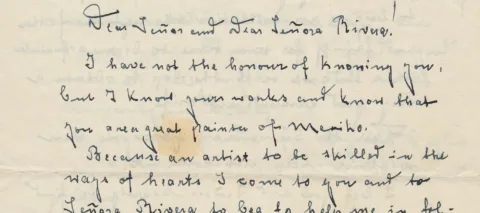 Dear Señor and Dear Señora Rivera!
I have not the honour of knoning you,
but I know yours works and know that
you are a great painter of Mexiko.
Because an artist to be skilled in the
ways of hearts I come to you and to
Señora Rivera to beg to help me in fol-